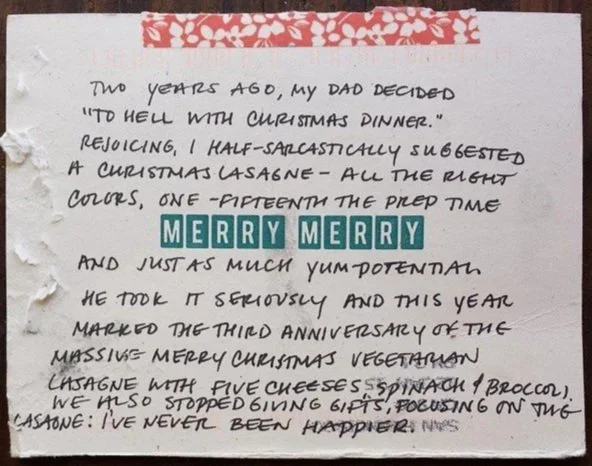 TWO YEARS AGO, MY DAD DECIDED
"TO HELL WITH CHRISTMAS DINNER."
REJOICING, I HALF-SARCASTICALLY SUGGESTED
A CHRISTMAS LASAGNE - ALL THE RIGHT
COLORS, ONE-FIFTEENTH THE PREP TIME
MERRY MERRY
AND JUST AS MUCH YUM POTENTIAL
HE TOOK IT SERIOUSLY AND THIS YEAR
MARKED THE THIRD ANNIVERSARY OF THE
MASSIVE MERRY CHRISTMAS VEGETARIAN
LASAGNE WITH FIVE CHEESES, SPINACH & BROCCOLI.
WE ALSO STOPPED GIVING GIFTS, FOCUSING ON THE
LASAGNE: I'VE NEVER BEEN HAPPIER.